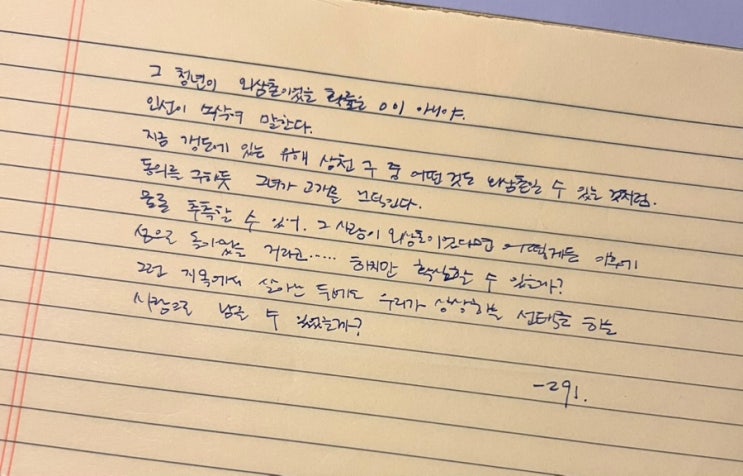 그 청년이 외삼촌이었을 확률은 0이 아니야.
인선이 말한다.
지금 갱도에 있는 유해 삼천 구 중 어떤 것도 외삼촌일 수 있는 것처럼.
동의를 구하듯 그녀가 고개를 끄덕인다.
물론 추측할 수 있어. 그 사람이 외삼촌이었다면 어떻게든 이후에
섬으로 돌아왔을 거라고...... 하지만 확신할 수 있을까?
그런 지옥에서 살아난 뒤에도 우리가 상상하는 선택을 하는
사람으로 남을 수 있었을까?
-291.